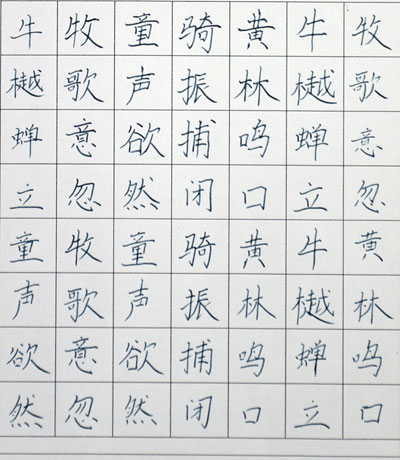 牛牧童骑黄牛牧
樾歌声振林樾歌
蝉意欲捕鸣蝉意
立忽然闭口立忽
童牧童骑黄牛黄
声歌声振林樾林
欲意欲捕鸣蝉鸣
然忽然闭口立口